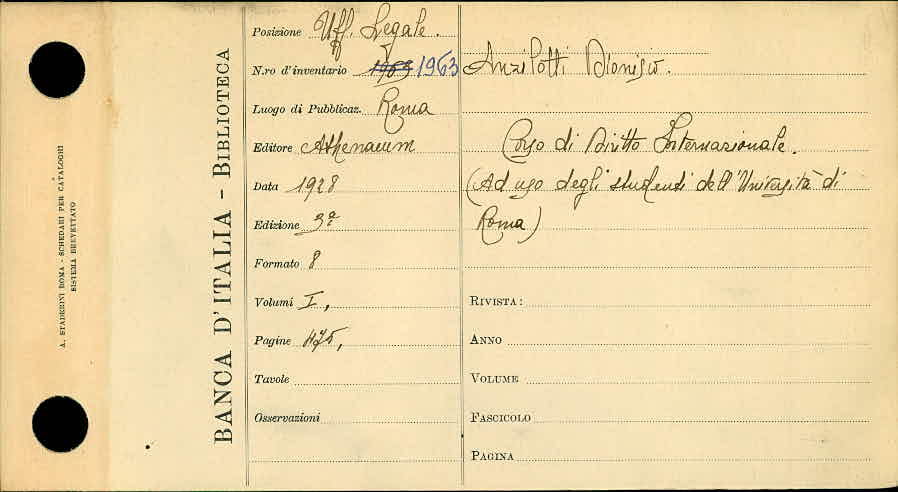 A. STADERINI ROMA - SCHEDARI PER CATALOGHI
SISTEMA BREVETTATO
BANCA D'ITALIA - BIBLIOTECA
Posizione Uff. Legale.
N.ro d'inventario 1963
Luogo di Pubblicaz. Roma
Editore Athenaeum
Data 1928
Edizione 3ª
Formato 8
Volumi I,
Pagine 475,
Tavole
Osservazioni
Anzilotti Dionisio.
Corso di Diritto Internazionale.
(Ad uso degli studenti dell'Università di
Roma)
RIVISTA:
ANNO
VOLUME
FASCICOLO
PAGINA